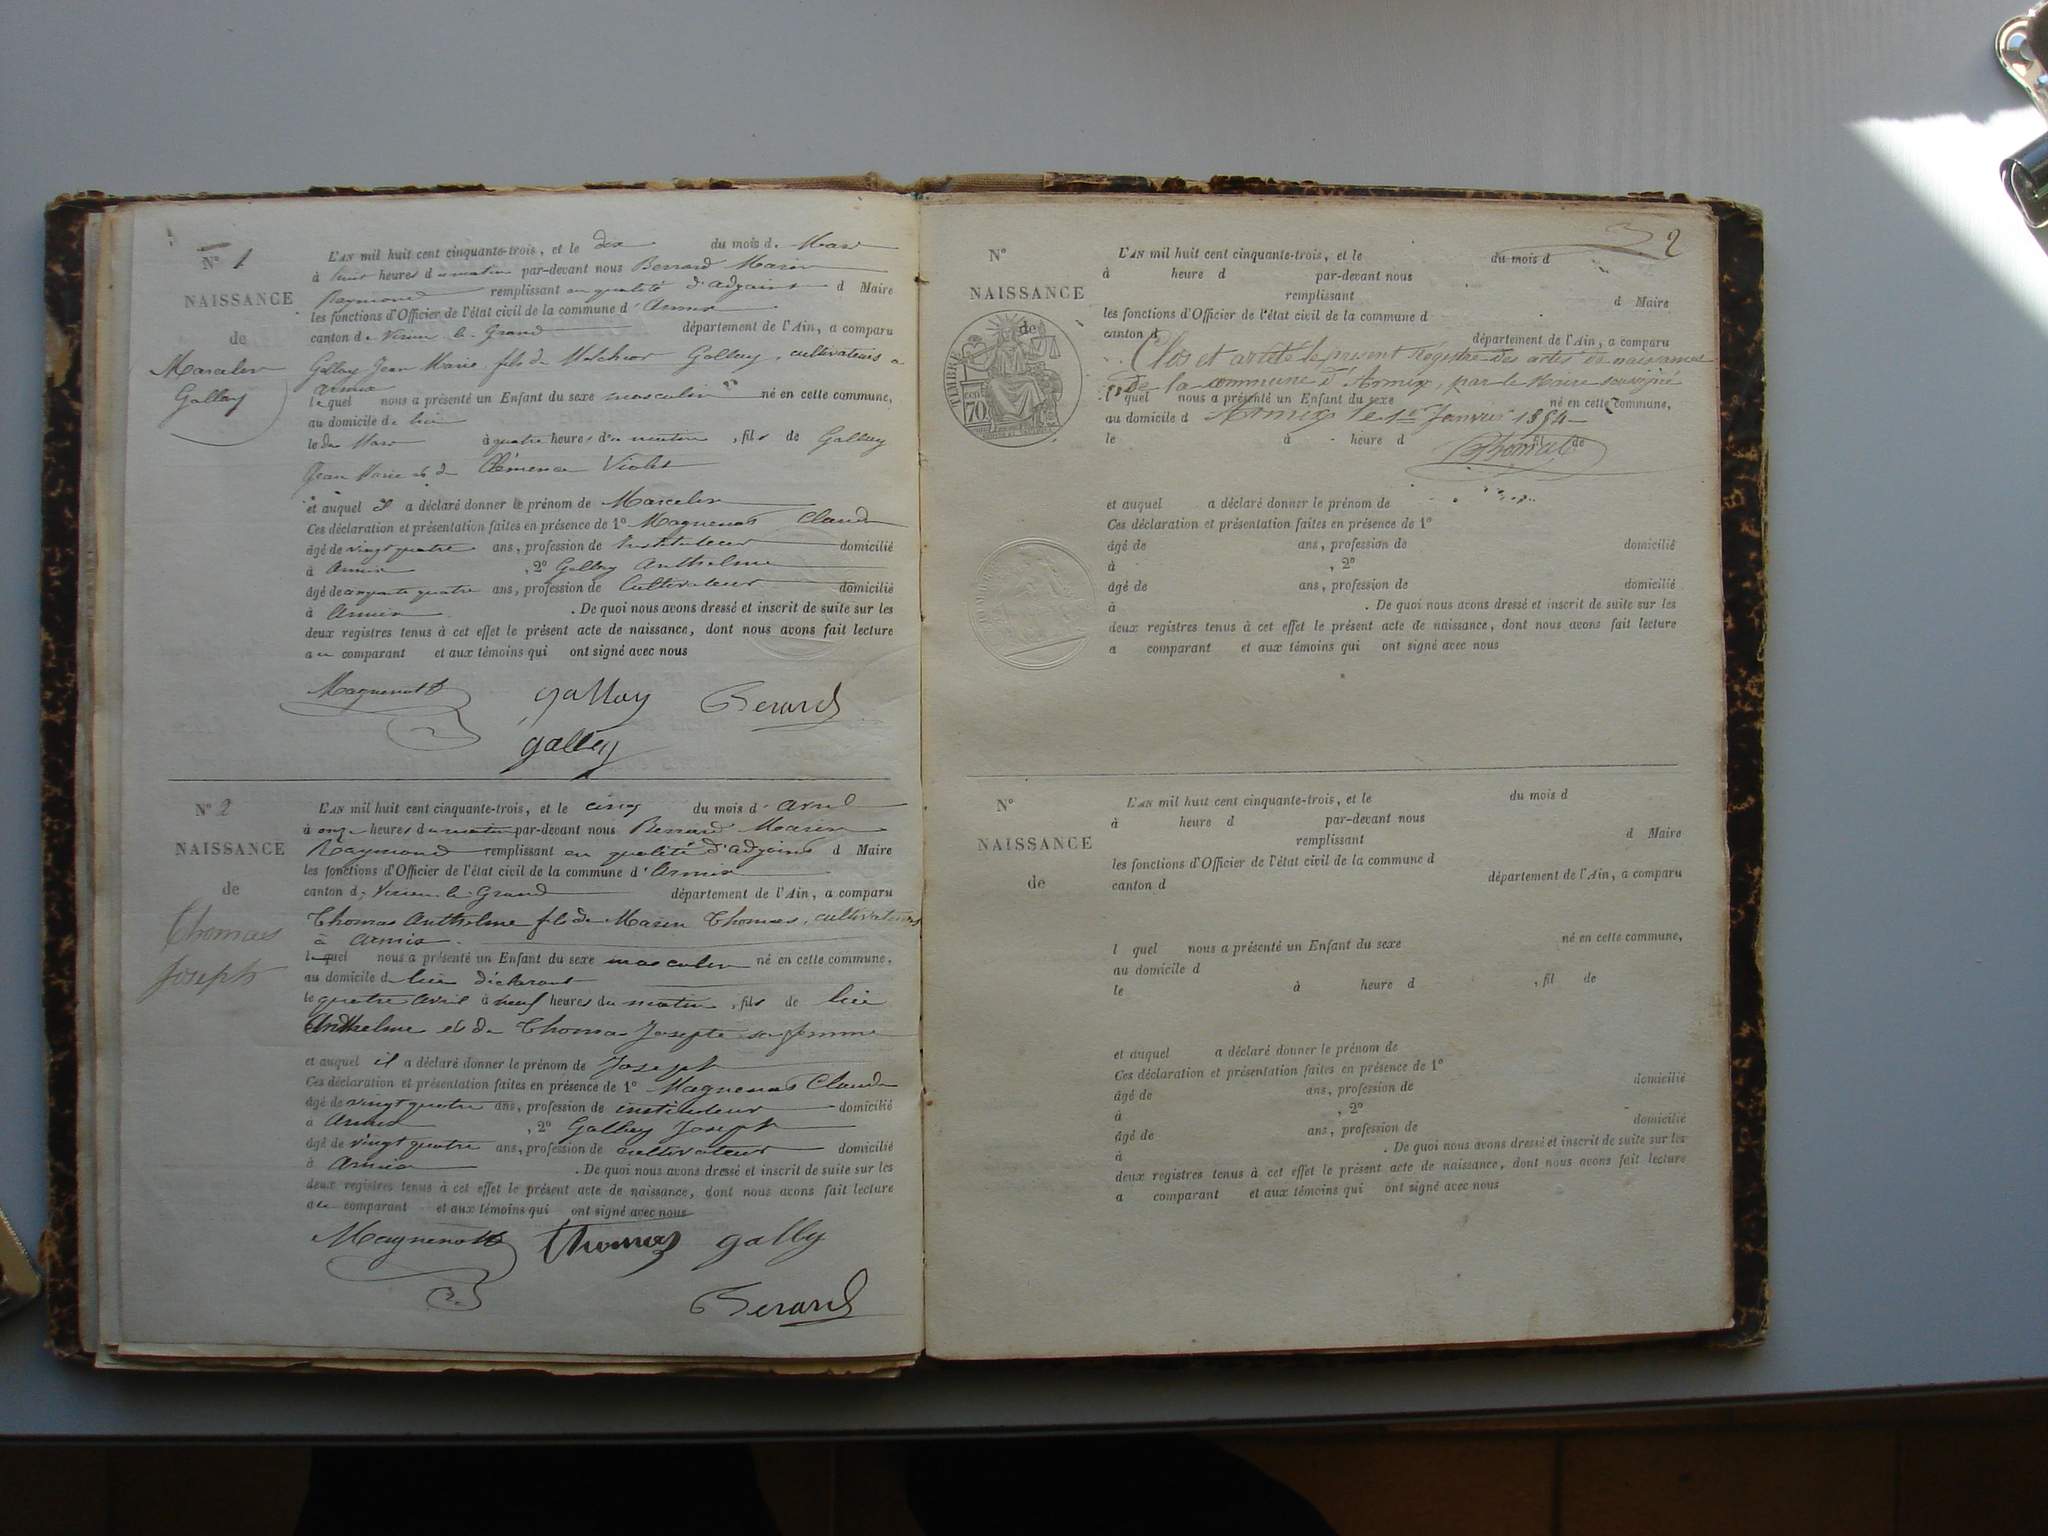 N° 1
NAISSANCE
de
Marcelin
Gallay
L'AN mil huit cent cinquante-trois, et le dix du mois de Mars
à huit heures du matin par-devant nous Berrard Marin
Raymond remplissant en qualité d'adjoint d Maire
les fonctions d'Officier de l'état civil de la commune d'Armix
canton de Virieu le Grand département de l'Ain, a comparu
Gallay Jean Marie fils de Melchior Gallay, cultivateurs a
Armix
lequel nous a présenté un Enfant du sexe masculin né en cette commune,
au domicile de lui
le dix Mars à quatre heures du matin, fils de Gallay
Jean Marie et de Clémence Violet
et auquel il a déclaré donner le prénom de Marcelin
Ces déclaration et présentation faites en présence de 1° Magnenot Claude
âgé de vingt quatre ans, profession de Instituteur domicilié
à Armix, 2° Gallay Anthelme
âgé de cinquante quatre ans, profession de Cultivateur domicilié
à Armix. De quoi nous avons dressé et inscrit de suite sur les
deux registres tenus à cet effet le présent acte de naissance, dont nous avons fait lecture
au comparant et aux témoins qui ont signé avec nous
Magnenot gallay Berard
gallay
N° 2
NAISSANCE
de
Thomas
Joseph
L'AN mil huit cent cinquante-trois, et le cinq du mois d'avril
à onze heures du matin par-devant nous Berrard Marin
Raymond remplissant en qualité d'adjoint d Maire
les fonctions d'Officier de l'état civil de la commune d'Armix
canton de Virieu-le-Grand département de l'Ain, a comparu
Thomas Anthelme fils de Marin Thomas, cultivateurs
à Armix.
lequel nous a présenté un Enfant du sexe masculin né en cette commune,
au domicile de lui déclarant
le quatre avril à neuf heures du matin, fils de lui
Anthelme et de Thomas Josepte sa femme
et auquel il a déclaré donner le prénom de Joseph
Ces déclaration et présentation faites en présence de 1° Magnenot Claude
âgé de vingt quatre ans, profession de instituteur domicilié
à Armix, 2° Gallay Joseph
âgé de vingt quatre ans, profession de cultivateur domicilié
à Armix. De quoi nous avons dressé et inscrit de suite sur les
deux registres tenus à cet effet le présent acte de naissance, dont nous avons fait lecture
au comparant et aux témoins qui ont signé avec nous
Magnenot Thomas gally
Berard
2
N°
NAISSANCE
de
TIMBRE
70
L'AN mil huit cent cinquante-trois, et le du mois d
à heure d par-devant nous
remplissant d Maire
les fonctions d'Officier de l'état civil de la commune d
canton d département de l'Ain, a comparu
Clos et arrêté le présent Régistre des actes de naissances
de la commune d'Armix, par le Maire soussigné
l quel nous a présenté un Enfant du sexe né en cette commune,
au domicile d Armix le 1er Janvier 1854
le à heure d fil de
Thomas
et auquel a déclaré donner le prénom de
Ces déclaration et présentation faites en présence de 1°
âgé de ans, profession de domicilié
à , 2°
âgé de ans, profession de domicilié
à . De quoi nous avons dressé et inscrit de suite sur les
deux registres tenus à cet effet le présent acte de naissance, dont nous avons fait lecture
a comparant et aux témoins qui ont signé avec nous
N°
NAISSANCE
de
L'AN mil huit cent cinquante-trois, et le du mois d
à heure d par-devant nous
remplissant d Maire
les fonctions d'Officier de l'état civil de la commune d
canton d département de l'Ain, a comparu
l quel nous a présenté un Enfant du sexe né en cette commune,
au domicile d
le à heure d , fil de
et auquel a déclaré donner le prénom de
Ces déclaration et présentation faites en présence de 1°
âgé de ans, profession de domicilié
à , 2°
âgé de ans, profession de domicilié
à . De quoi nous avons dressé et inscrit de suite sur les
deux registres tenus à cet effet le présent acte de naissance, dont nous avons fait lecture
a comparant et aux témoins qui ont signé avec nous